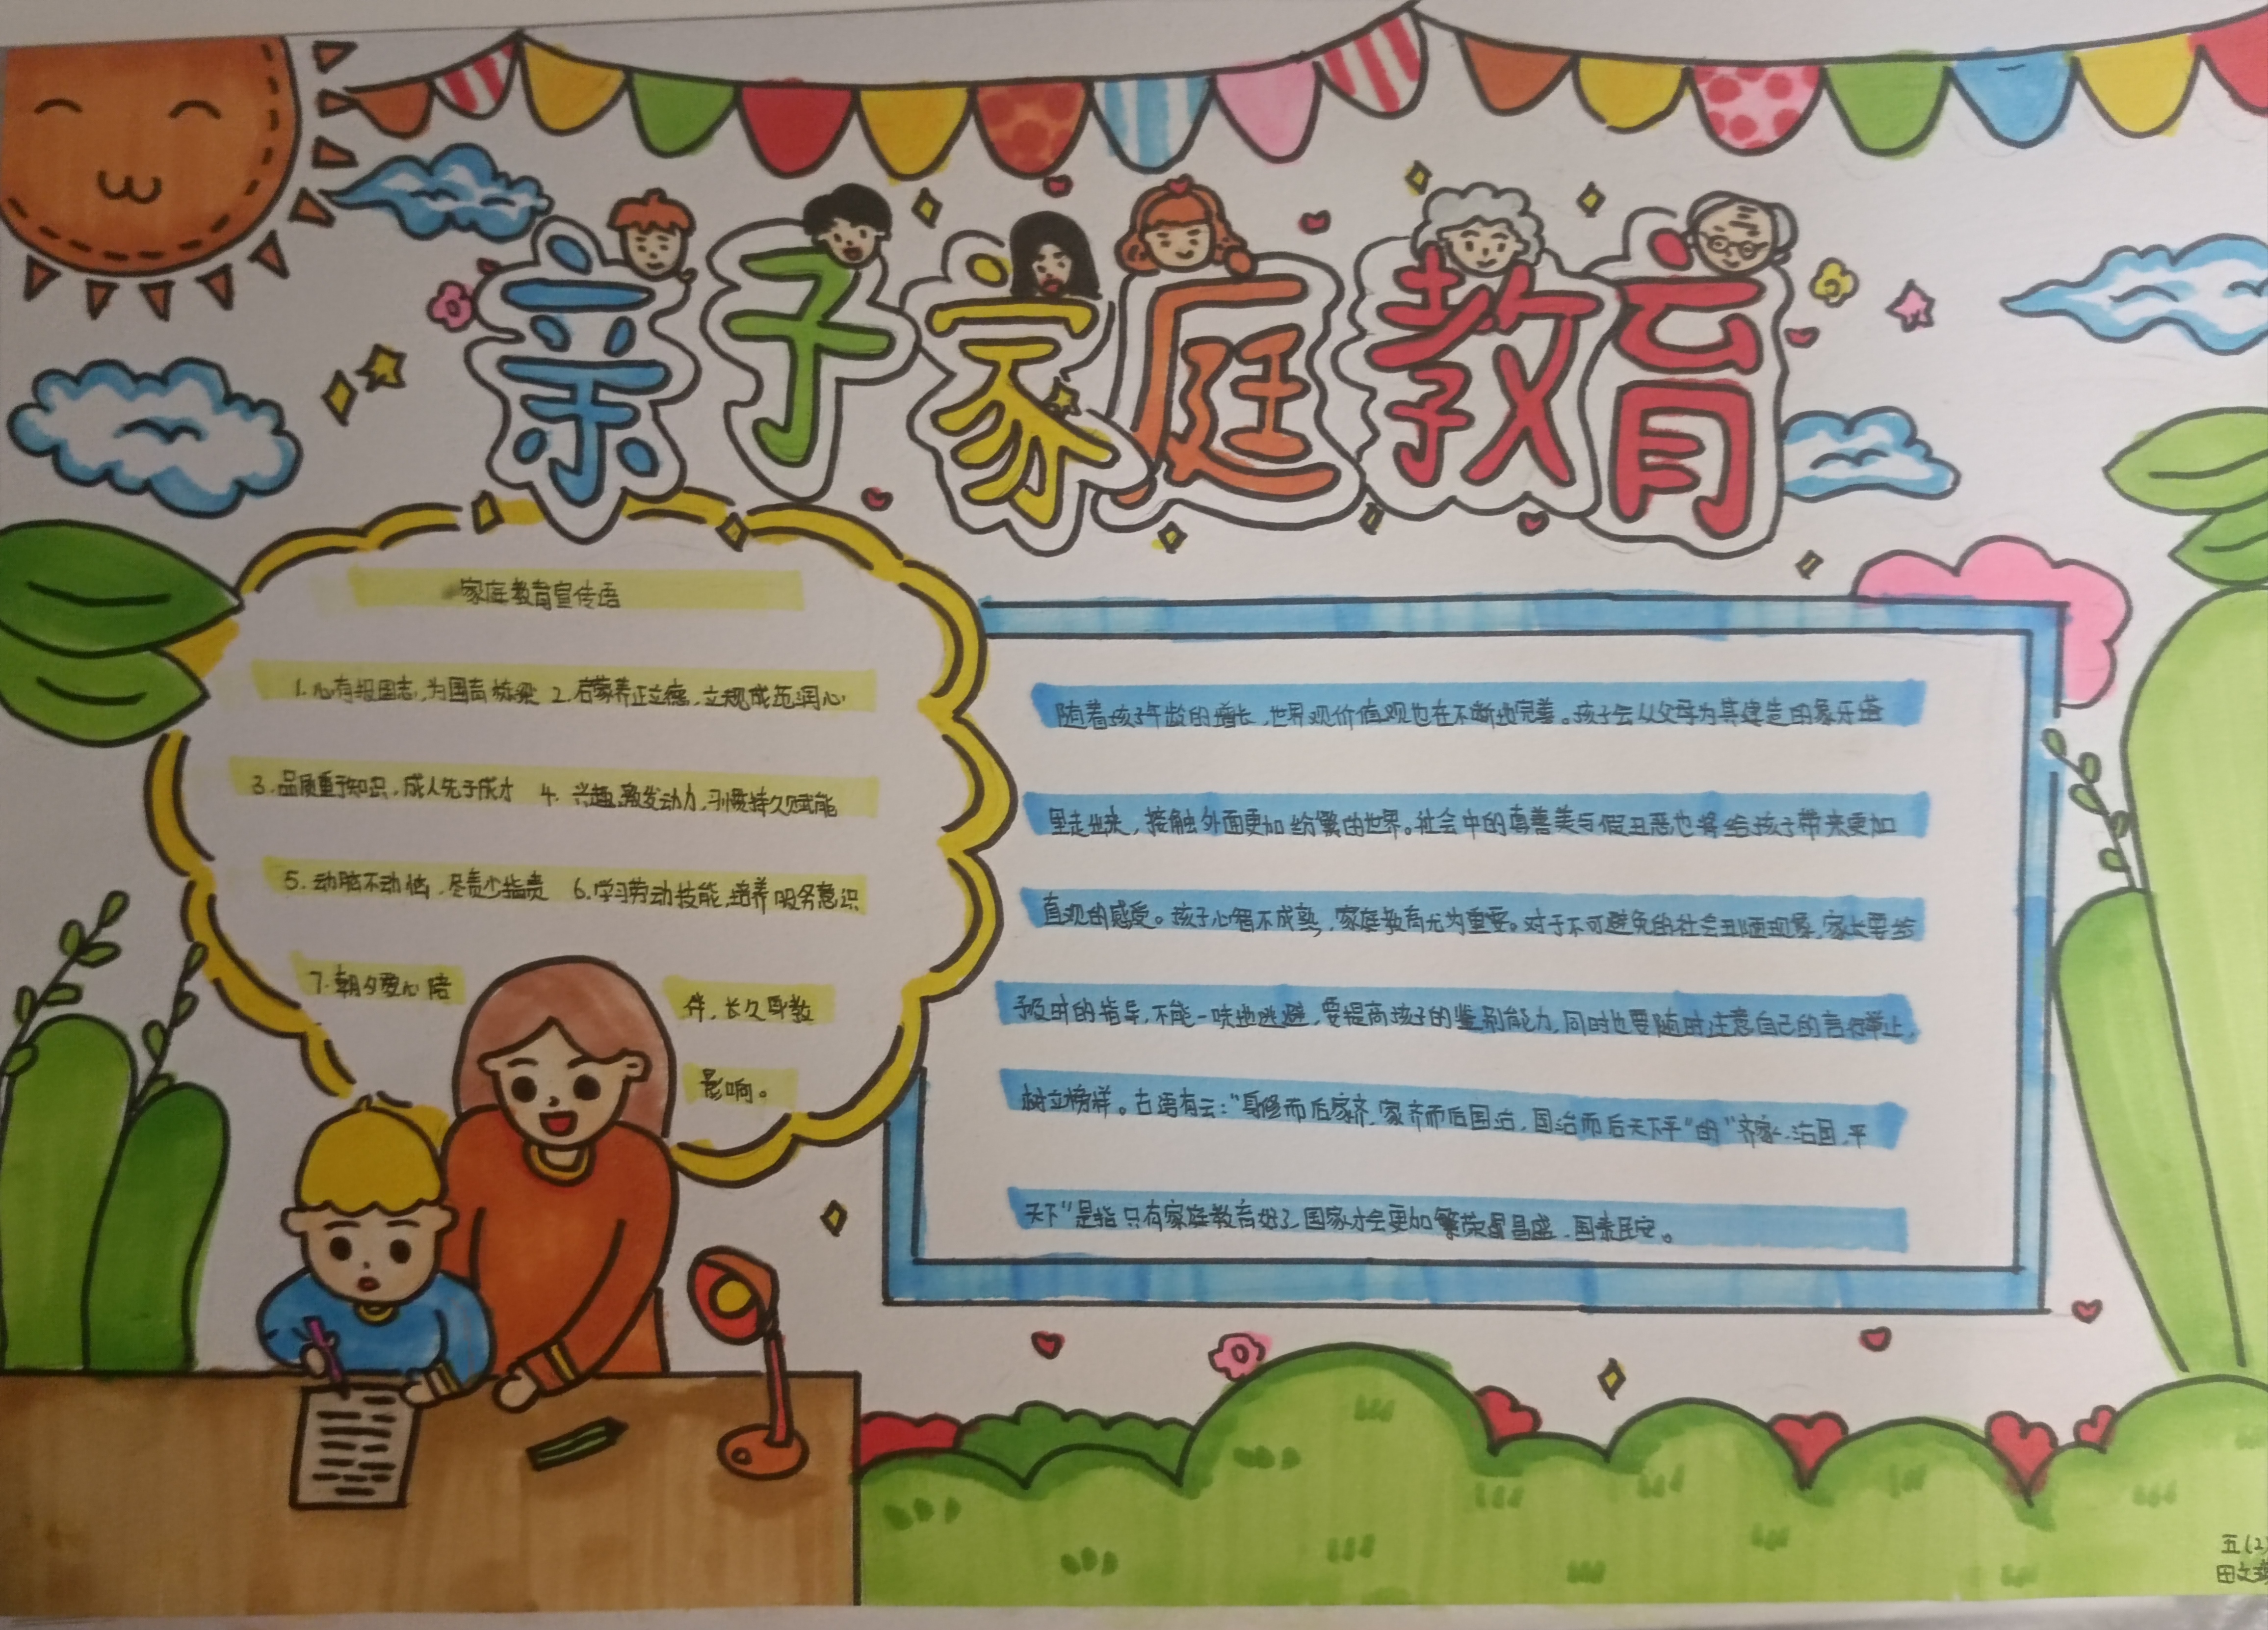 亲子家庭教育
家庭教育宣传语
1.心有报国志,为国育栋梁 2.启蒙养正立德,立规成范润心
3.品质重于知识,成人先于成才 4.兴趣激发动力,习惯持久赋能
5.动脑不动怒,尽责少指责 6.学习劳动技能,培养服务意识
7.朝夕爱心陪
伴,长久身教
影响。
随着孩子年龄的增长,世界观价值观也在不断地完善。孩子会从父母为其建造的象牙塔
里走出来,接触外面更加纷繁的世界。社会中的真善美与假丑恶也将给孩子带来更加
直观的感受。孩子心智不成熟,家庭教育尤为重要。对于不可避免的社会丑陋现象,家长要给
予及时的指导,不能一味地逃避,要提高孩子的鉴别能力,同时也要随时注意自己的言行举止,
树立榜样。古语有云:"身修而后家齐,家齐而后国治,国治而后天下平"的"齐家、治国、平
天下"是指只有家庭教育好了国家才会更加繁荣昌盛、国泰民安。
五(2)
田文